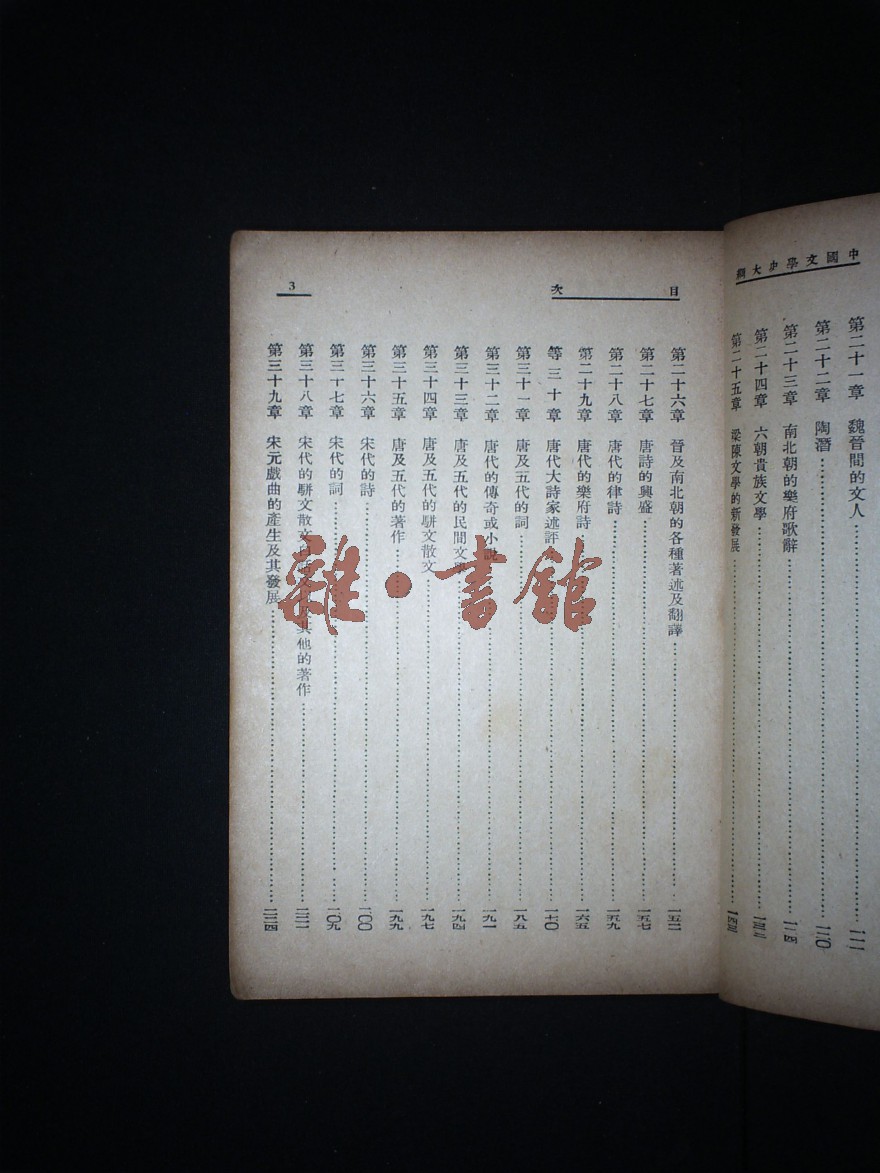 中國文學史大綱
第二十一章 魏晉間的文人………一一一
第二十二章 陶潛………一二〇
第二十三章 南北朝的樂府歌辭………一二四
第二十四章 六朝貴族文學………一三二
第二十五章 梁陳文學的新發展………一四三
目次
3
第二十六章 晉及南北朝的各種著述及翻譯………一五二
第二十七章 唐詩的興盛………一五七
第二十八章 唐代的律詩………一五九
第二十九章 唐代的樂府詩………一六五
等三十章 唐代大詩家述評………一七〇
第三十一章 唐及五代的詞………一八五
第三十二章 唐代的傳奇或小說………一九一
第三十三章 唐及五代的民間文學………一九四
第三十四章 唐及五代的駢文散文………一九七
第三十五章 唐及五代的著作………一九九
第三十六章 宋代的詩………二〇〇
第三十七章 宋代的詞………二〇九
第三十八章 宋代的駢文散文其他的著作………二二二
第三十九章 宋元戲曲的產生及其發展………二二四
雜·書館